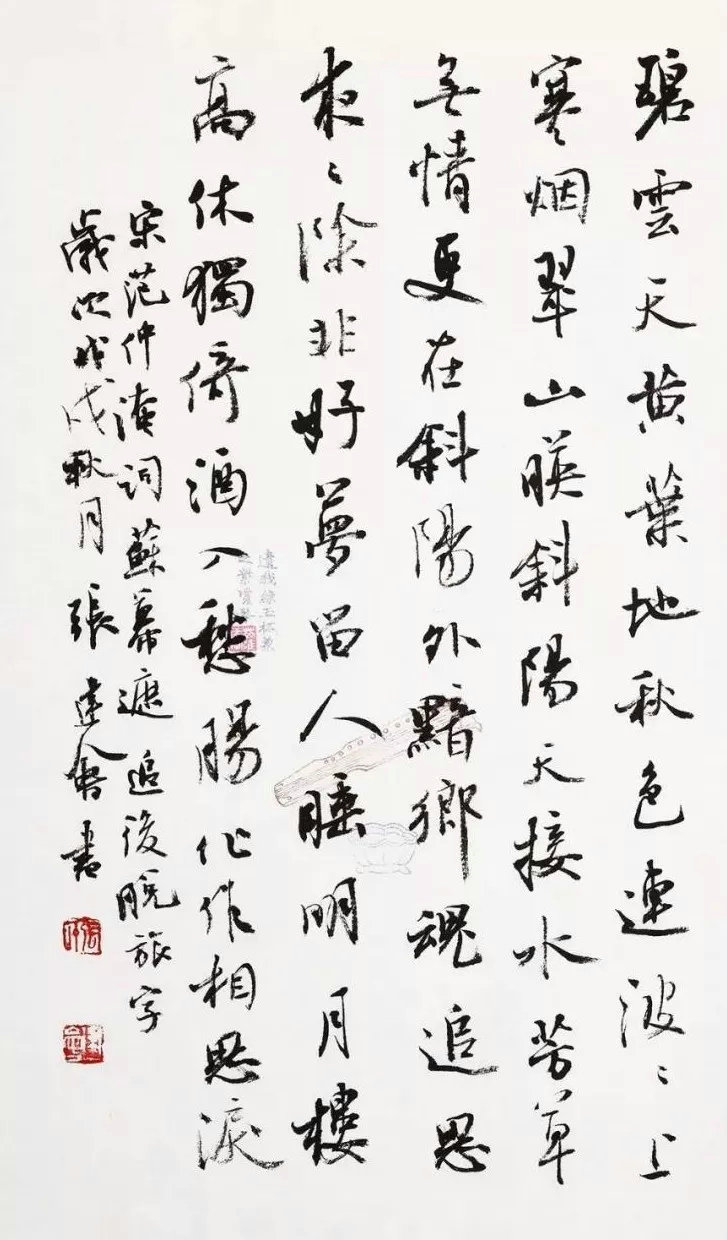 碧雲天黄葉地秋色連波〻上
寒烟翠山映斜陽天接水芳草
無情更在斜陽外黯鄉魂追思
夜〻除非好夢留人睡明月樓
高休獨倚酒入愁腸化作相思淚
宋范仲淹詞蘇幕遮 追後脱旅字
歲次戊戌秋月 張建會書